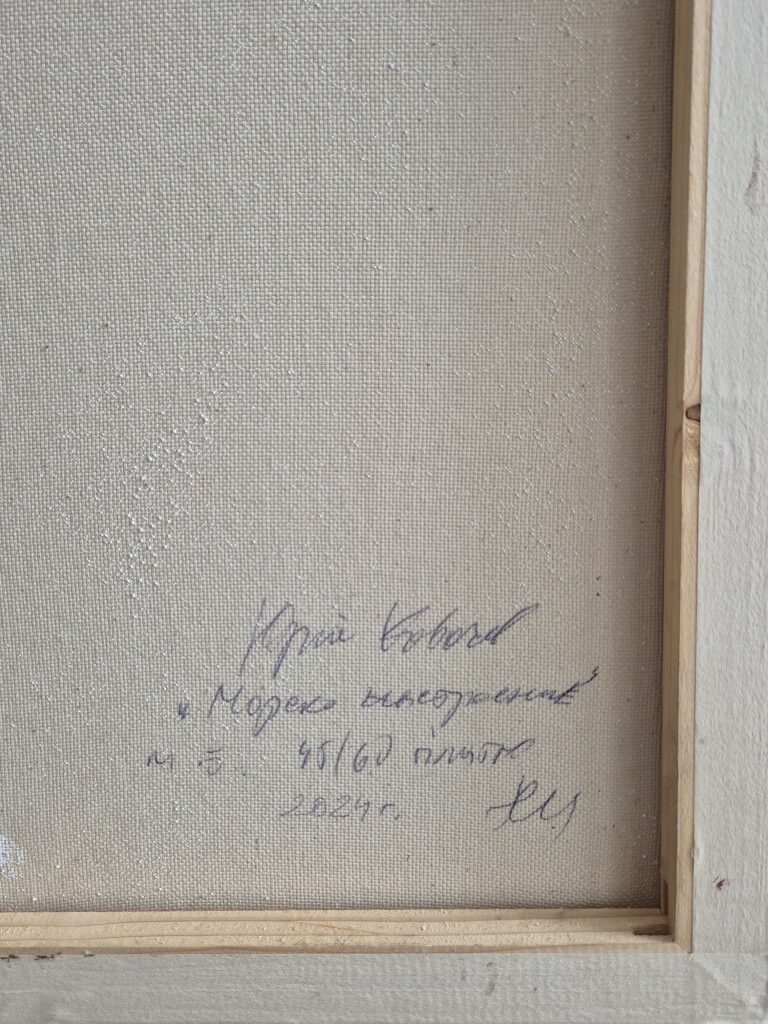 Юрий Ковачев
"Морско настроение"
м.б. 45/60 платно
2024 г.